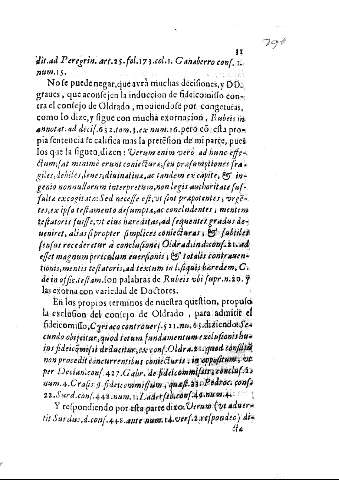 31
dit. ad Peregrin. art. 25. fol. 173. col. 1. Ganaberro conf. 1.
num. 15.
No se puede negar, que avrà muchas decisiones, y DD.
graues, que aconsejen la induccion de fideicomisso con-
tra el consejo de Oldrado, mouiendose por congeturas,
como lo dize, y sigue con mucha exornacion, Rubeis in
annotat. ad decis. 632. tom. 3. ex num. 16. pero cō esta pro
pia sentencia se califica mas la pretension de mi parte, pues
los que la siguen, dizen: Verum enim verò ad hunc effe-
ctum, sat minimè erunt coniecturæ, seu præsumptiones fra
giles, debiles, leues, diuinatiuæ, ac tandem ex capite, & in
genio nonnullorum interpretum, non legis authoritate suf-
fultæ excogitatæ: Sed necesse est, vt sint præpotentes, vrgē-
tes, ex ipso testamento desumptæ, ac concludentes; mentem
testatoris fuisse, vt eius hæreditas, ad sequentes gradus de-
ueniret, alias si propter simplices coniecturas; & subtiles
sensus recederetur à conclusione; Oldradi, in d. cons. 21. ad
esset magnum periculum euersionis; & totalis contrauen-
tionis, mentis testatoris, ad textum in l. si quis hæredem, C.
de in offic. testam. son palabras de Rubeis vbi supr. n. 20. y
las exorna con variedad de Doctores.
En los propios terminos de nuestra question, propuso
la exclusion del consejo de Oldrado, para admitir el
fideicomisso, Cyriaco controuers. 521. nu. 65. diziendo: Se-
cundo obijcitur, quod totum fundamentum exclusionis hu-
ius fideicōmissi deducitur, ex cons. Oldra. 21. quod consiliū
non procedit concurrentibus coniecturis in oppositum, vt
per Decian. cons. 427. Gabr. de fideicommissis, conclus. 12
num. 4. Crass. §. fideicommissum, quæst. 22. Pedroc. cons.
22. Surd. cons. 448. num. 1. Laderch. cons. 49. num. 4.
Y respondiendo por esta parte dixo. Verum (vt aduer-
tit Surdus, d. cons. 448. ante num. 14. vers. 2. respondeo) di-
cta